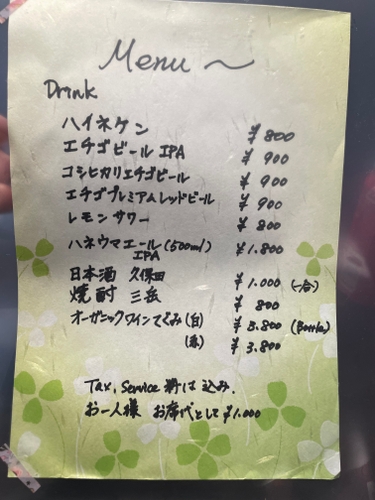 Menu ～
Drink
ハイネケン ¥800
エチゴビール IPA ¥900
コシヒカリエチゴビール ¥900
エチゴプレミアムレッドビール ¥900
レモンサワー ¥800
ハネウマエール(500ml) ¥1.800
IPA
日本酒 久保田 ¥1.000 (一合)
焼酎 三岳 ¥800
オーガニックワインてるみ(白) ¥3.800 (Bottle)
(赤) ¥3.800
Tax, Service 料は込み.
お一人様 お席代として¥1.000